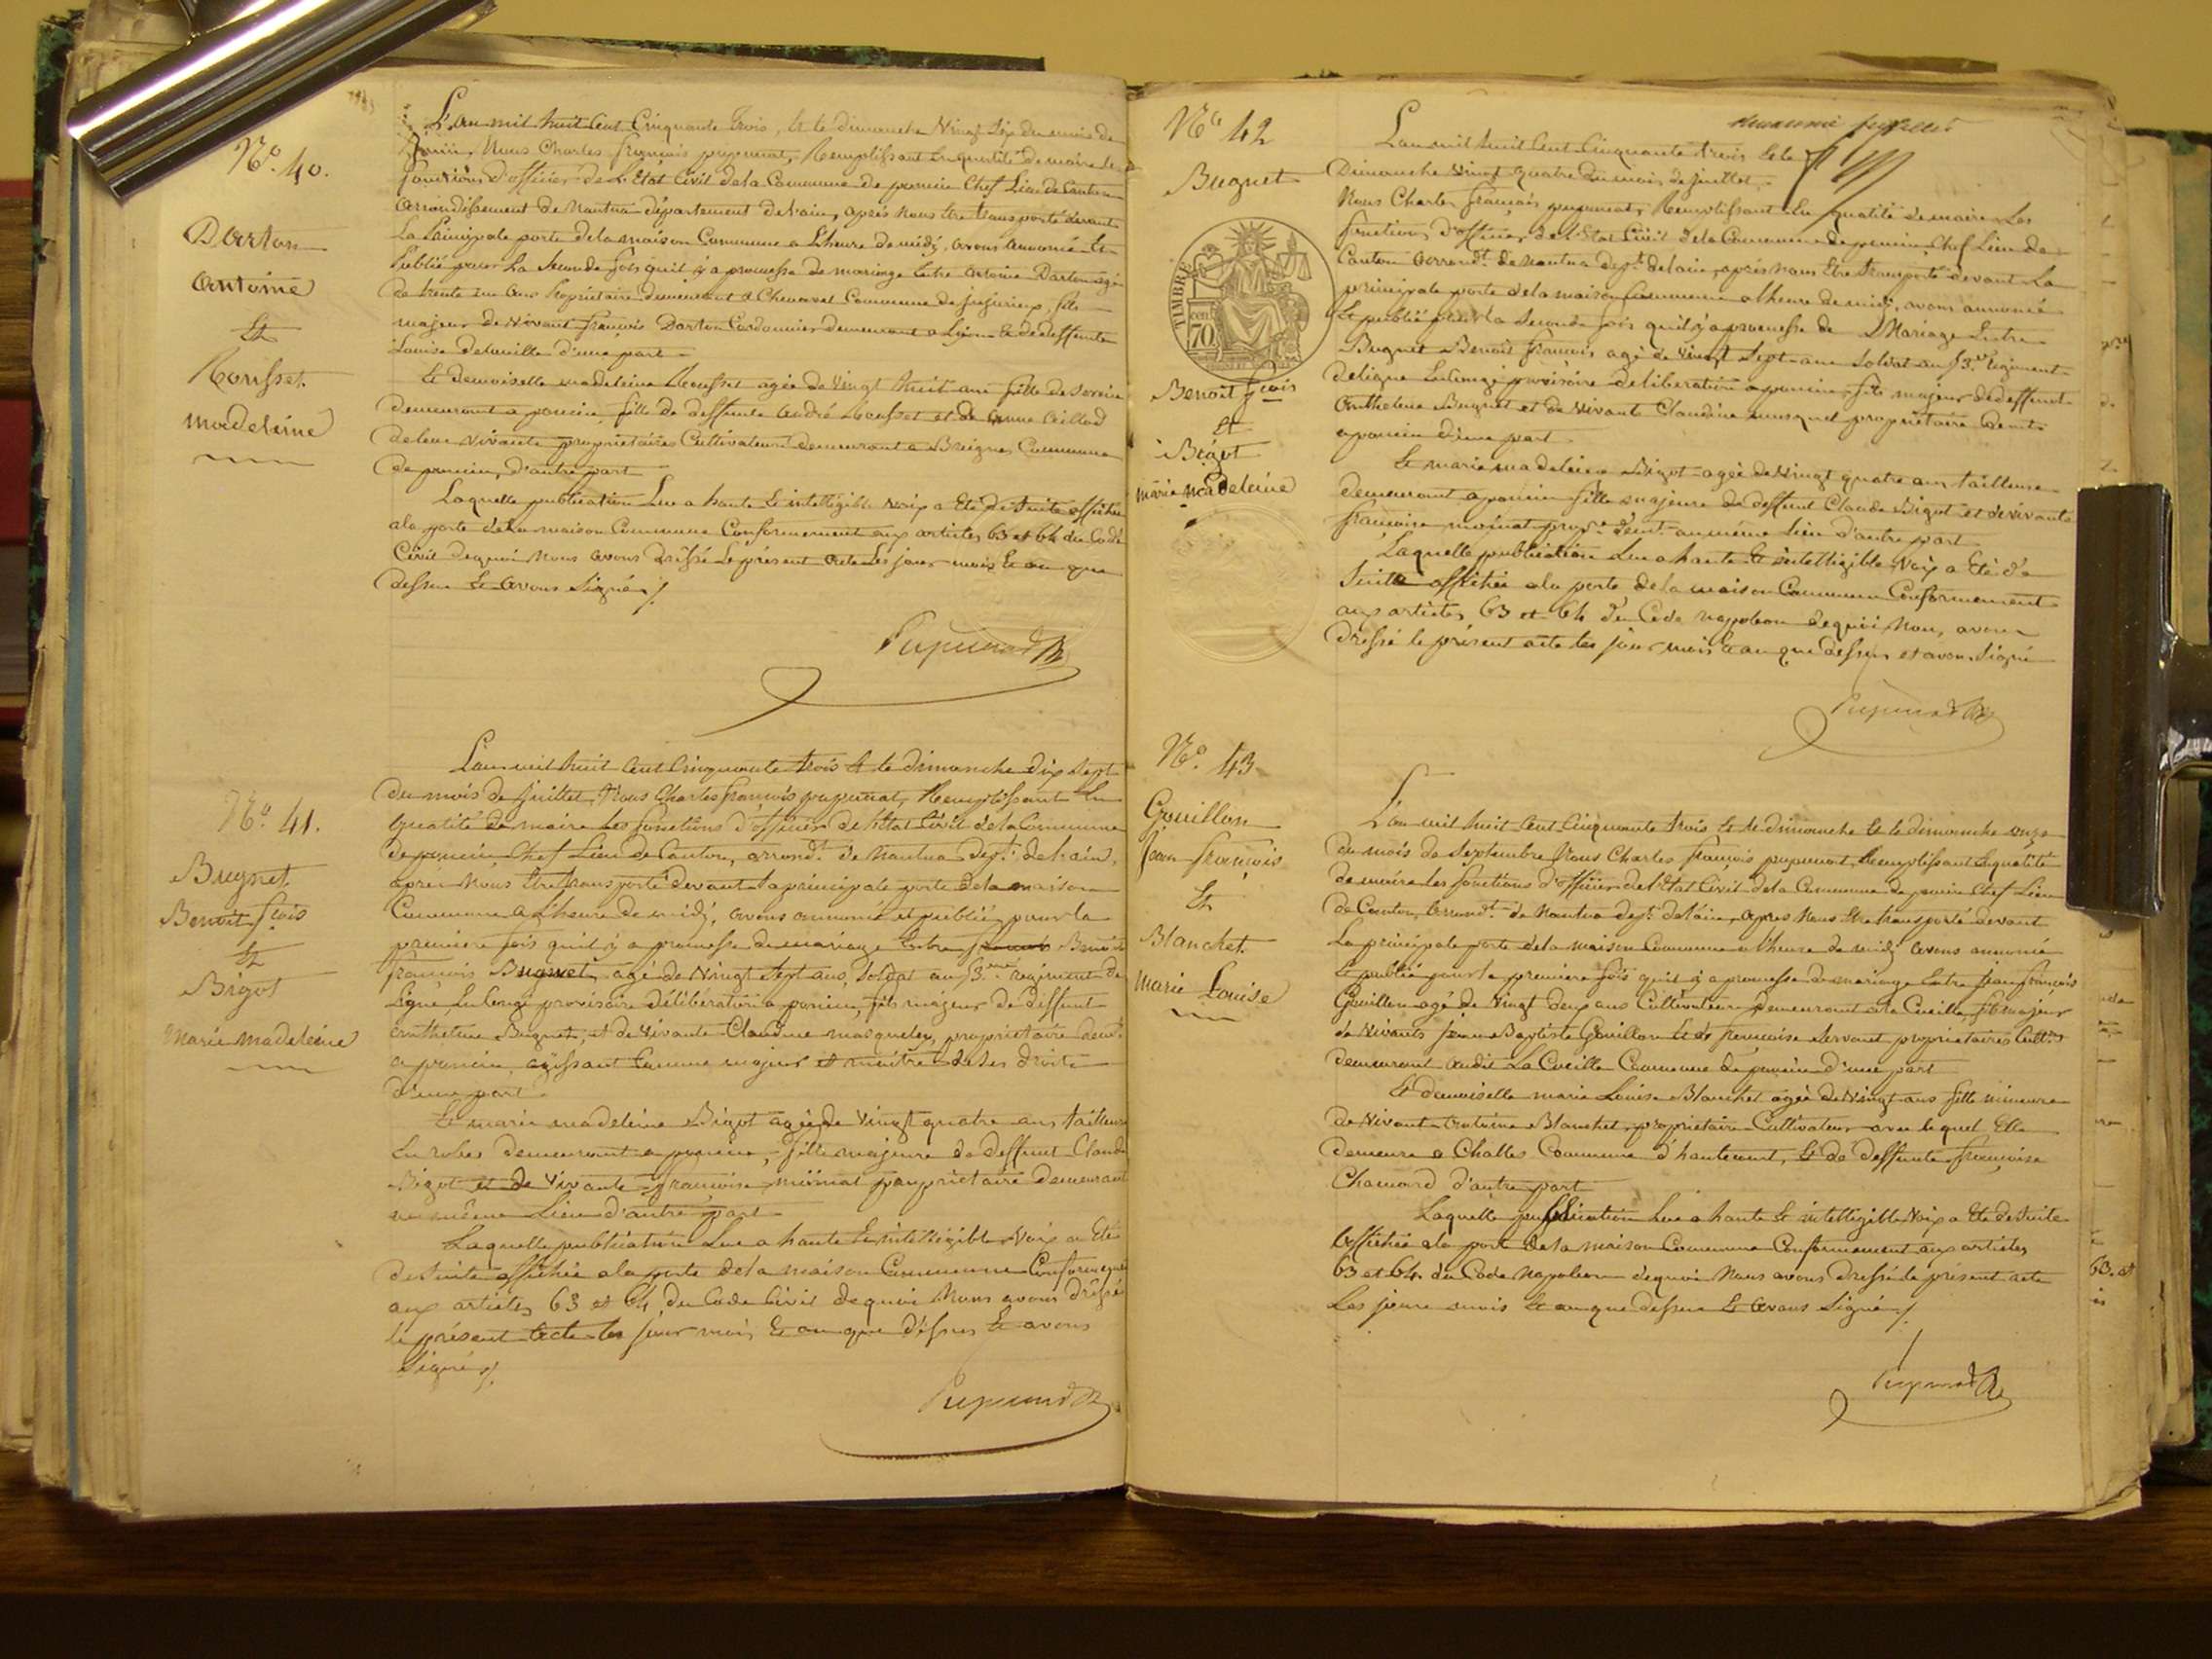 N°. 40.
Darton
Antoine
Et
Rousset
Madeleine
L'an mil huit Cent Cinquante trois, Et le dimanche Vingt Six du mois de
Juin, Nous Charles françois pupunat, Remplissant En qualité de maire les
fonctions d'officier de L'Etat Civil dela Commune de poncin Chef Lieu de Canton
arrondissement de Nantua département de l'ain, après nous Etre transporté devant
La Principale porte dela maison Commune a L'heure de midi, avons annoncé Et
Publié pour La Seconde fois quil y a promesse de mariage Entre Antoine Darton agé
de trente un ans Propriétaire demeurant a Chenavel Commune de jujurieux, fils
majeur de vivant françois Darton Cordonnier demeurant a Lyon Et de deffunte
Louise d'une part
Et demoiselle madeleine Rousset agée de Vingt huit ans fille de Service
demeurant a poncin, fille de deffunts André Rousset et de Anne
deleur vivants propriétaires Cultivateurs demeurant a Breignes Commune
de poncin, d'autre part
Laquelle publication Lue a haute Et intelligible voix a Eté de Suite affichée
ala porte dela maison Commune Conformement aux articles 63 et 64 du Code
Civil dequoi nous avons dréssé Le présent acte Les jour mois Et an que
dessus Et avons Signé ./.
Pupunat
N°. 41.
Bugnet
Benoit fcois
Et
Bigot
Marie Madeleine
L'an mil huit Cent Cinquante trois Et le dimanche dix Sept
du mois de Juillet, Nous Charles françois pupunat, Remplissant En
qualité de maire Les fonctions d'officier de l'Etat Civil dela Commune
de poncin Chef Lieu de Canton, arrondt. de Nantua dept. de l'ain,
après Nous Etre transporté devant la principale porte dela maison
Commune a L'heure de midi, avons annoncé et publié pour la
première fois quil y a promesse de mariage Entre Benoit
françois Bugnet, agé de Vingt Sept ans, Soldat au régiment de
Ligne En Congé provisoire de libération a poncin, fils majeur de deffunt
Anthelme Bugnet, et de vivante Claudine propriétaire demt.
a poncin, agissant Comme majeur et maitre de Ses droits
d'une part
Et marie madeleine Bigot agée de Vingt quatre ans tailleuse
En robes demeurant a poncin, fille majeure de deffunt Claude
Bigot et de Vivante françoise moinat propriétaire demeurant
au même Lieu d'autre part
Laquelle publication Lue a haute Et intelligible Voix a Eté
de Suite affichée ala porte dela maison Commune Conformement
aux articles 63 et 64 du Code Civil dequoi Nous avons dréssé
le présent acte les jour mois Et an que dessus Et avons
Signé ./.
Pupunat
N° 42
Bugnet
TIMBRE
cent
70
Benoit fcois
Et
Bigot
marie madeleine
L'an mil huit Cent Cinquante trois Et le
Dimanche Vingt quatre du mois de Juillet,
Nous Charles françois pupunat, Remplissant En qualité de maire Les
fonctions d'officier de l'Etat Civil dela Commune de poncin Chef Lieu de
Canton arrondt. de Nantua dept. de l'ain, après nous Etre transporté devant La
principale porte dela maison Commune a l'heure de midi, avons annoncé
Et publié pour la Seconde fois quil y a promesse de Mariage Entre
Bugnet Benoit françois agé de Vingt Sept ans Soldat au régiment
de ligne En Congé provisoire de libération a poncin, fils majeur de deffunt
Anthelme Bugnet et de vivante Claudine propriétaire demt.
a poncin d'une part
Et marie madeleine Bigot agée de Vingt quatre ans tailleuse
demeurant a poncin fille majeure de deffunt Claude Bigot et de vivante
françoise moinat propre. demt. au même lieu d'autre part
Laquelle publication Lue a haute Et intelligible Voix a Eté de
Suite affichée ala porte dela maison Commune Conformement
aux articles 63 et 64 du Code Napoléon dequoi Nous avons
dréssé le présent acte les jour mois Et an que dessus et avons Signé
Pupunat
N°. 43
Gouillon
Jean françois
Et
Blanchet
Marie Louise
L'an mil huit Cent Cinquante trois Et le dimanche Et le dimanche onze
du mois de Septembre Nous Charles françois pupunat, Remplissant En qualité
de maire les fonctions d'officier de l'Etat Civil dela Commune de poncin Chef Lieu
de Canton, arrondt. de Nantua dept. de l'ain, après Nous Etre transporté devant
La principale porte dela maison Commune a l'heure de midi avons annoncé
Et publié pour la première fois quil y a promesse de mariage Entre jean françois
Gouillon agé de Vingt deux ans Cultivateur demeurant ala Cueille fils majeur
de Vivants jean Baptiste Gouillon Et de françoise Servant propriétaires Cultrs
demeurant audit La Cueille Commune de poncin d'une part
Et demoiselle marie Louise Blanchet agée de Vingt ans fille mineure
de Vivant Antoine Blanchet, propriétaire Cultivateur avec lequel Elle
demeure a Challes Commune d'hautecourt, Et de deffunte françoise
Chanard d'autre part
Laquelle publication Lue a haute Et intelligible Voix a Eté de Suite
affichée ala porte dela maison Commune Conformement aux articles
63 et 64 du Code Napoléon dequoi Nous avons dréssé le présent acte
Les jour mois Et an que dessus Et avons Signé ./.
Pupunat
63. et